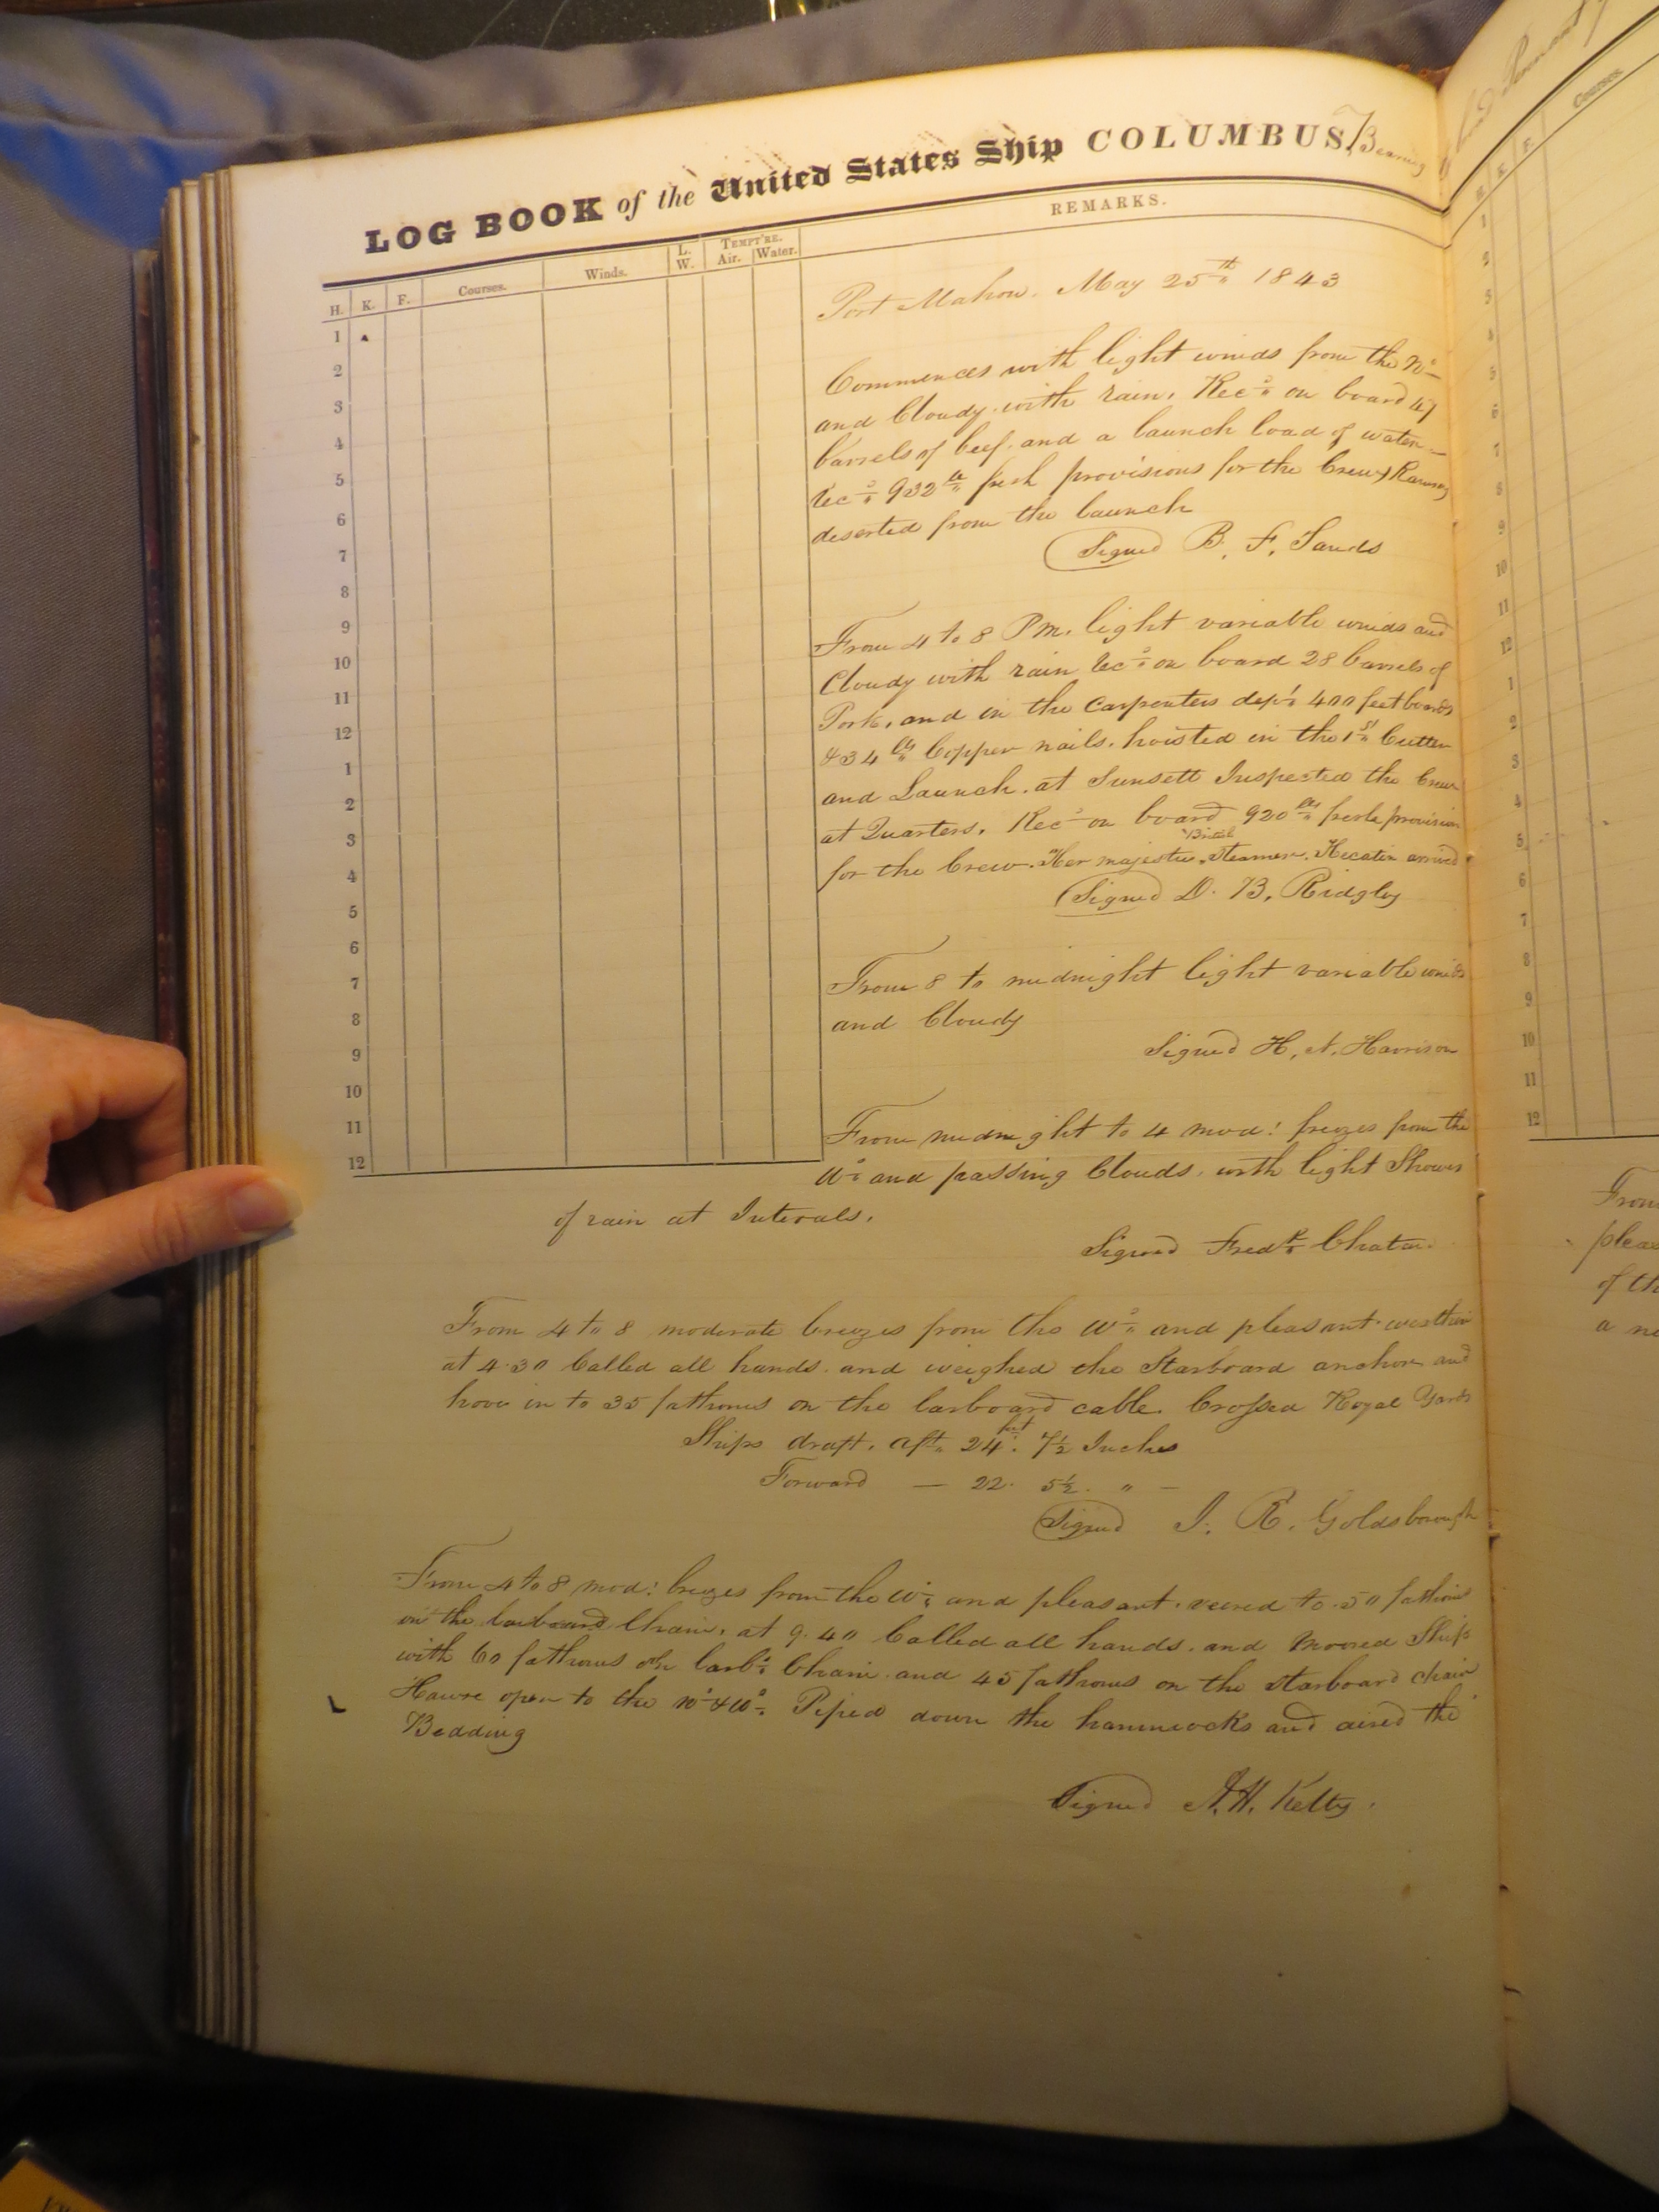 LOG BOOK of the United States Ship COLUMBUS, Bearing
H. K. F. Courses. Winds. L. W. TEMPT'RE. Air. Water. REMARKS.
1
2
3
4
5
6
7
8
9
10
11
12
1
2
3
4
5
6
7
8
9
10
11
12
Port Mahon. May 25th 1843
Commences with light winds from the Nd
and Cloudy with rain. Recd on board 47
barrels of beef. and a launch load of water
Recd 932 lbs fresh provisions for the Crew,
deserted from the launch
Signed B. F. Sands
From 4 to 8 Pm. light variable winds and
Cloudy with rain Recd on board 28 barrels of
Pork, and in the Carpenters dept 400 feet boards
& 34 lbs Copper nails. hoisted in the 1st Cutter
and Launch. at Sunsett Inspected the Crew
at Quarters. Recd on board 920 lbs fresh provision
for the Crew. Her majesties British Steamer. arrived
Signed D. B. Ridgley
From 8 to midnight light variable winds
and Cloudy
Signed H. N. Harrison
From midnight to 4 mod: breezes from the
Wd and passing Clouds. with light Showers
of rain at Intervals.
Signed Fredk Chatar.
From 4 to 8 moderate breezes from the Wd and pleasant weather
at 4.30 Called all hands. and weighed the Starboard anchor and
hove in to 35 fathoms on the larboard cable. Crossed Royal Yards
Ships draft. aft. 24 feet. 7½ Inches
Forward — 22. 5½. " —
Signed J. R. Goldsborough
From 4 to 8 mod: breezes from the Wd and pleasant. veered to 50 fathoms
on the larboard Chain. at 9.40 Called all hands. and Moored Ship
with 60 fathoms on larbd Chain. and 45 fathoms on the Starboard chain
Hawse open to the Nd & Wd. Piped down the hammocks and aired the
Bedding
Signed A. H. Kelty.
Pennant
Courses.
H. K. F.
1
2
3
4
5
6
7
8
9
10
11
12
1
2
3
4
5
6
7
8
9
10
11
12
From
pleas
of th